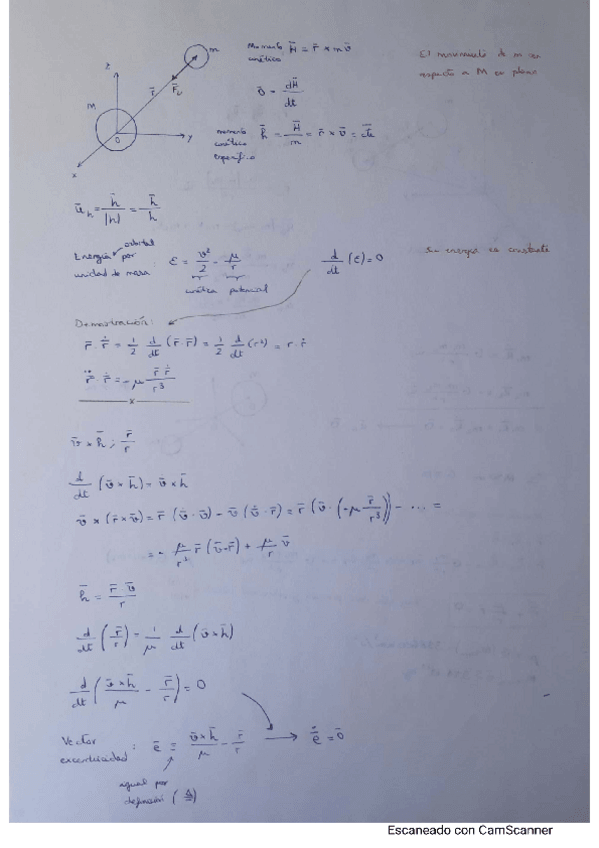 Momento cinético H̄ = r̄ × m v̄
m
z
r̄ F̄
M
0
y
x
El movimiento de m con respecto a M es plano
0̄ = dH̄/dt
momento cinético específico h̄ = H̄/m = r̄ × v̄ = cte
ū_h = h̄/|h̄| = h̄/h
Energía orbital por unidad de masa: ε = v²/2 - μ/r
cinética potencial
d/dt (ε) = 0
Su energía es constante
Demostración:
r̄ · ṙ̄ = 1/2 d/dt (r̄ · r̄) = 1/2 d/dt (r²) = r · ṙ
r̈̄ · ṙ̄ = -μ r̄ ṙ̄/r³
x
v̄ × h̄ ; r̄/r
d/dt (v̄ × h̄) = v̇̄ × h̄
v̇̄ × (r̄ × v̄) = r̄ (v̇̄ · v̄) - v̄ (v̇̄ · r̄) = r̄ (v̄ · (-μ r̄/r³)) - ... =
= - μ/r³ r̄ (v̄·r̄) + μ/r v̄
ṙ = r̄ · v̄/r
d/dt (r̄/r) = 1/μ d/dt (v̄ × h̄)
d/dt (v̄ × h̄/μ - r̄/r) = 0
Vector excentricidad: ē ≡ v̄ × h̄/μ - r̄/r → ė̄ = 0̄
igual por definición (≙)
Escaneado con CamScanner